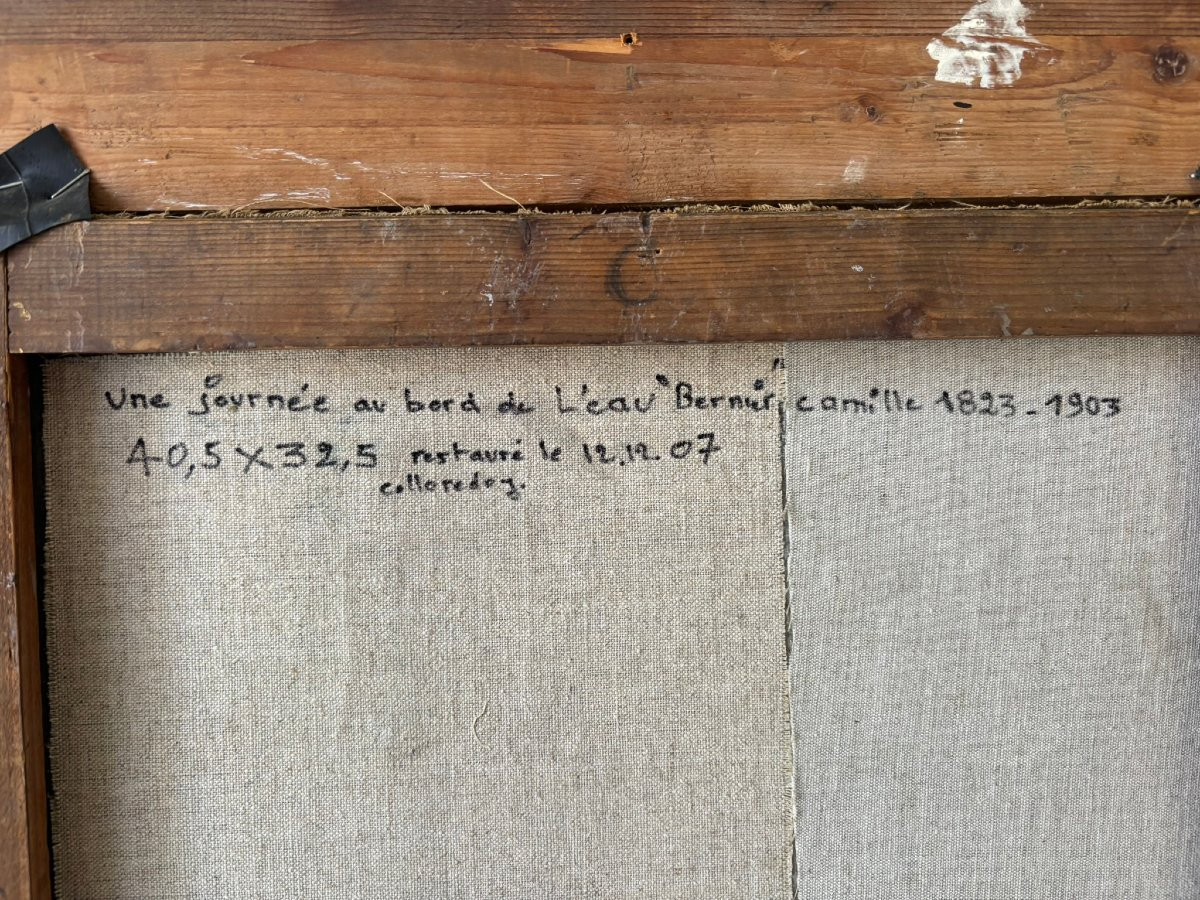 C
Une journée au bord de L'eau "Bernier" camille 1823-1903
40,5 x 32,5 restauré le 12.12.07